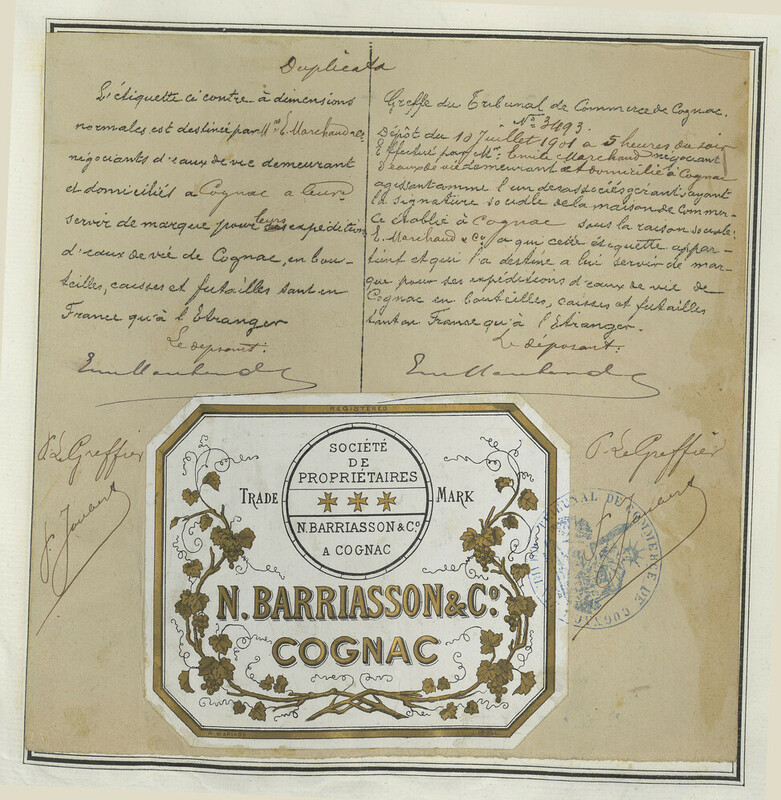 Duplicata
L'étiquette ci contre à dimensions
normales est destinée par Mrs E. Marchaud & Cie
négociants d'eaux de vie demeurant
et domiciliés a Cognac a leur
servir de marque pour leurs expéditions
d'eaux de vie de Cognac, en bou-
teilles, caisses et futailles tant en
France qu'à l'Etranger
Le déposant:
Greffe du Tribunal de Commerce de Cognac.
No 3493.
Dépôt du 10 Juillet 1901 a 5 heures du soir
Effectué par Mr. Emile Marchaud négociant
d'eaux de vie demeurant et domicilié à Cognac
agissant comme l'un des associés gérants ayant
la signature sociale de la maison de Commer-
ce établie à Cognac sous la raison sociale:
E. Marchaud & Co a qui cette étiquette appar-
tient et qui l'a destine a lui servir de mar-
que pour ses expéditions d'eaux de vie de
Cognac en bouteilles, caisses et futailles
tant en France qu'à l'Etranger.
Le déposant:
P. Le Greffier
P. Le Greffier
REGISTERED
SOCIÉTÉ
DE
PROPRIÉTAIRES
TRADE MARK
N. BARRIASSON & Co
A COGNAC
N. BARRIASSON & Co.
COGNAC
TRIBUNAL DU COMMERCE DE COGNAC